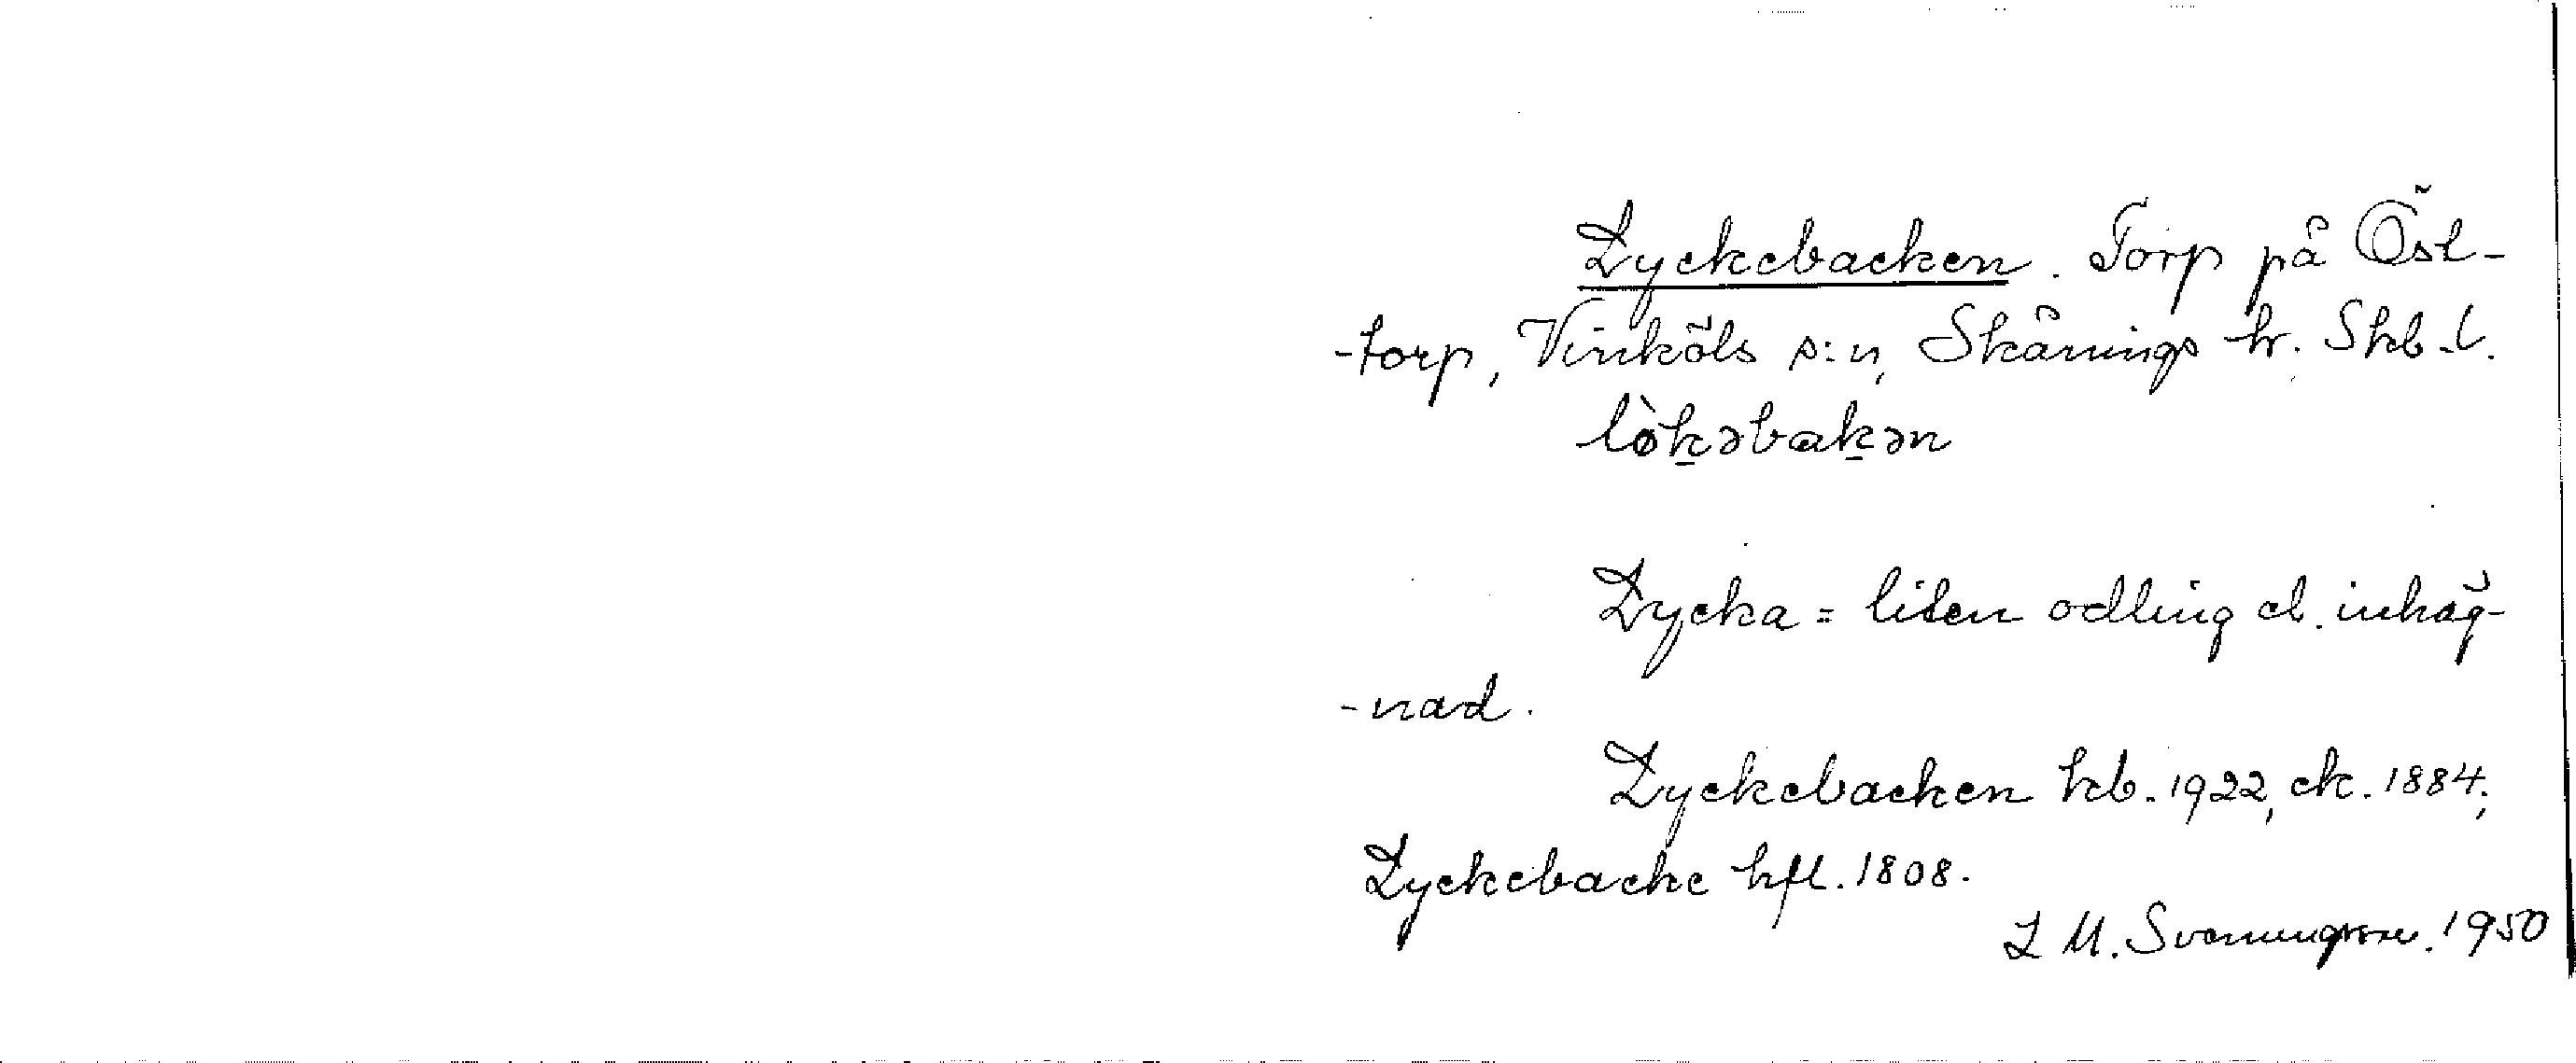 Lyckebacken. Torp på Öst-
-torp, Vinköls s:n, Skånings hr. Skb. l.
lø̀k̠əbak̠ən
Lycka = liten odling el. inhäg-
-nad.
Lyckebacken kb. 1922, ek. 1884;
Lyckebacke hfl. 1808.
L M. Svenungsson. 1950